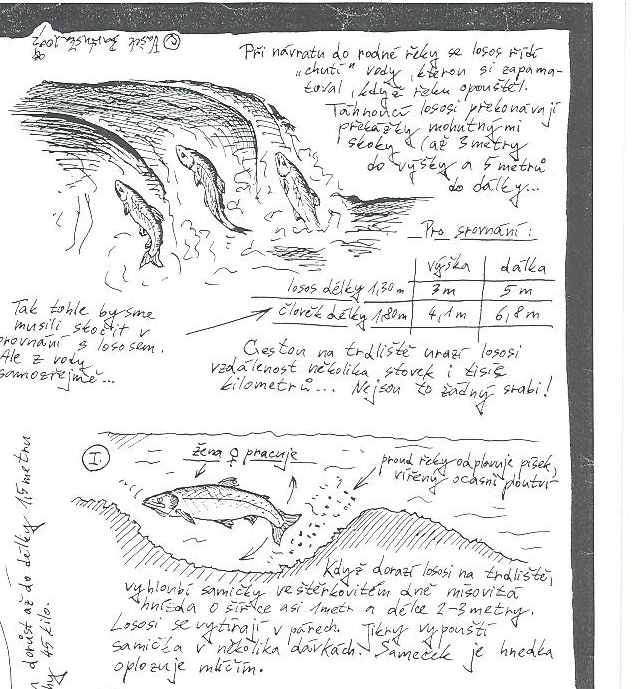 © Vašek
Při návratu do rodné řeky se losos řídí
„chutí" vody, kterou si zapama-
toval, když řeku opouštěl.
Táhnoucí lososi překonávají
překážky mohutnými
skoky (až 3 metry
do výšky a 5 metrů
do dálky...
Pro srovnání:
výška dálka
losos délky 1,30 m 3 m 5 m
člověk délky 1,80 m 4,1 m 6,8 m
Tak tohle bysme
musili skočit v
orovnání s lososem.
Ale z vody
samozřejmě...
Cestou na trdliště urazí lososi
vzdálenost několika stovek i tisíc
kilometrů... Nejsou to žádný srabi!
I.
žena ♀ pracuje
proud řeky odplavuje písek,
vířený ocasní ploutví
Když dorazí lososi na trdliště,
vyhloubí samičky ve štěrkovitém dně mísovitá
hnízda o šířce asi 1 metr a délce 2-3 metry.
Lososi se vytírají v párech. Jikry vypouští
samička v několika dávkách. Sameček je hnedka
oplozuje mlíčím.
dorůst až do délky 1,5 metru
hy 45 kilo.